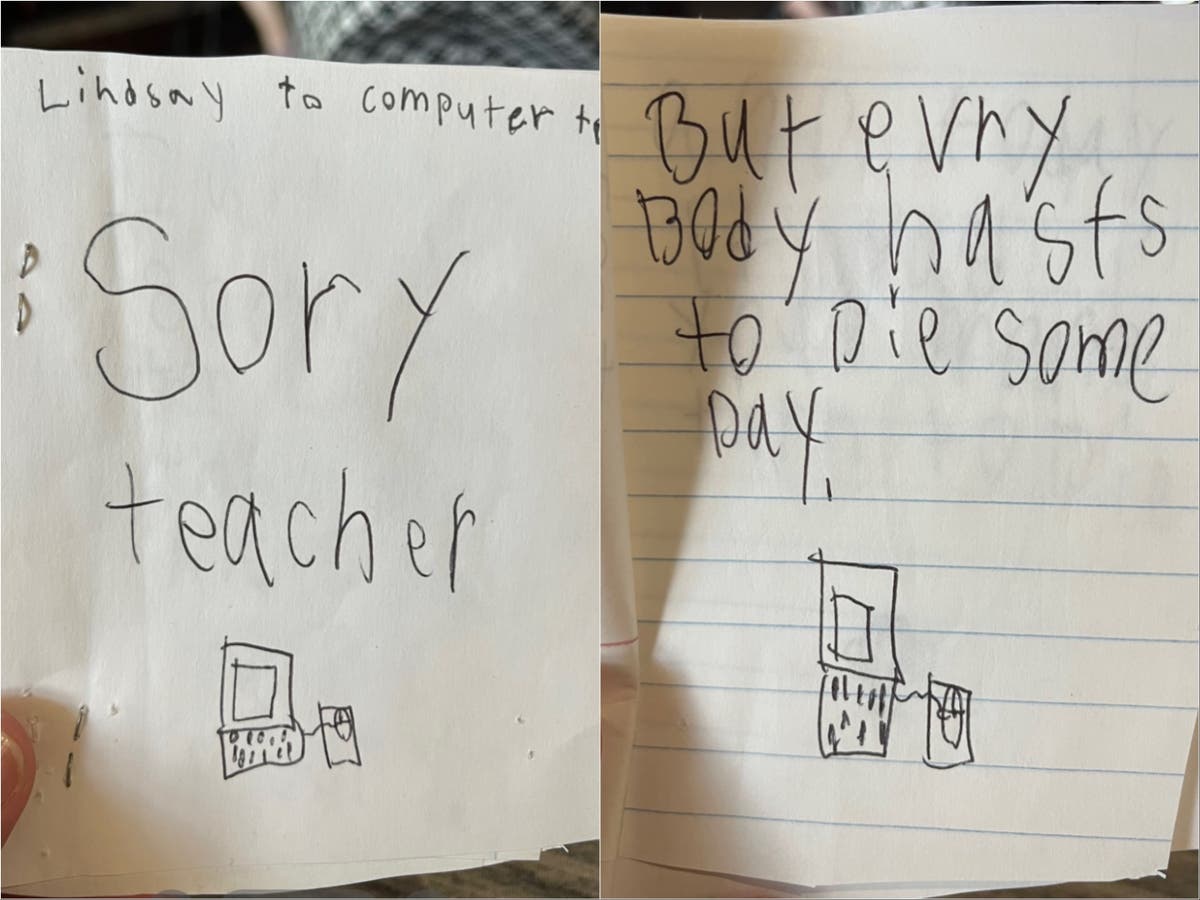 Lindsay to computer
Sory
teacher
But evry
Body hasts
to Die some
Day.